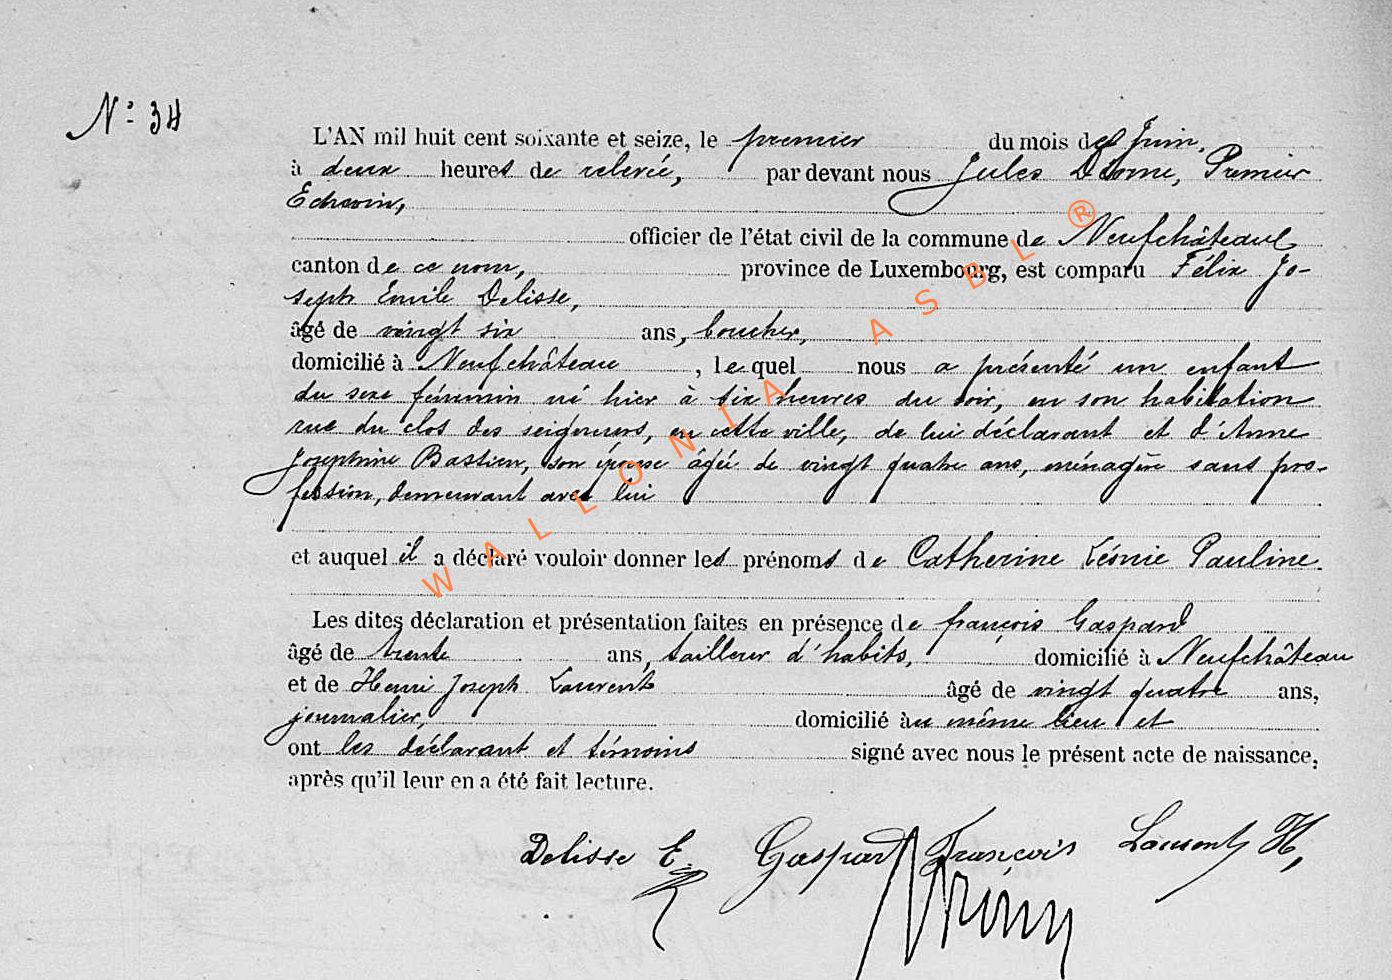 N° 34
L'AN mil huit cent soixante et seize, le premier du mois de Juin,
à deux heures de relevée, par devant nous Jules Premier
Echevin,
officier de l'état civil de la commune de Neufchâteau
canton de ce nom, province de Luxembourg, est comparu Félix Jo-
seph Emile Delisse,
âgé de vingt six ans, boucher,
domicilié à Neufchâteau, lequel nous a présenté un enfant
du sexe féminin né hier à six heures du soir, en son habitation
rue du clos des seigneurs, en cette ville, de lui déclarant et d'Anne
Josephine Bastien, son épouse âgée de vingt quatre ans, ménagère sans pro-
fession, demeurant avec lui
et auquel il a déclaré vouloir donner les prénoms de Catherine Léonie Pauline.
Les dites déclaration et présentation faites en présence de françois Gaspard
âgé de trente ans, tailleur d'habits, domicilié à Neufchâteau
et de Henri Joseph Laurent âgé de vingt quatre ans,
journalier, domicilié au même lieu et
ont les déclarant et témoins signé avec nous le présent acte de naissance,
après qu'il leur en a été fait lecture.
Delisse E. Gaspard François Laurent H,
WALLONIA ASBL ®